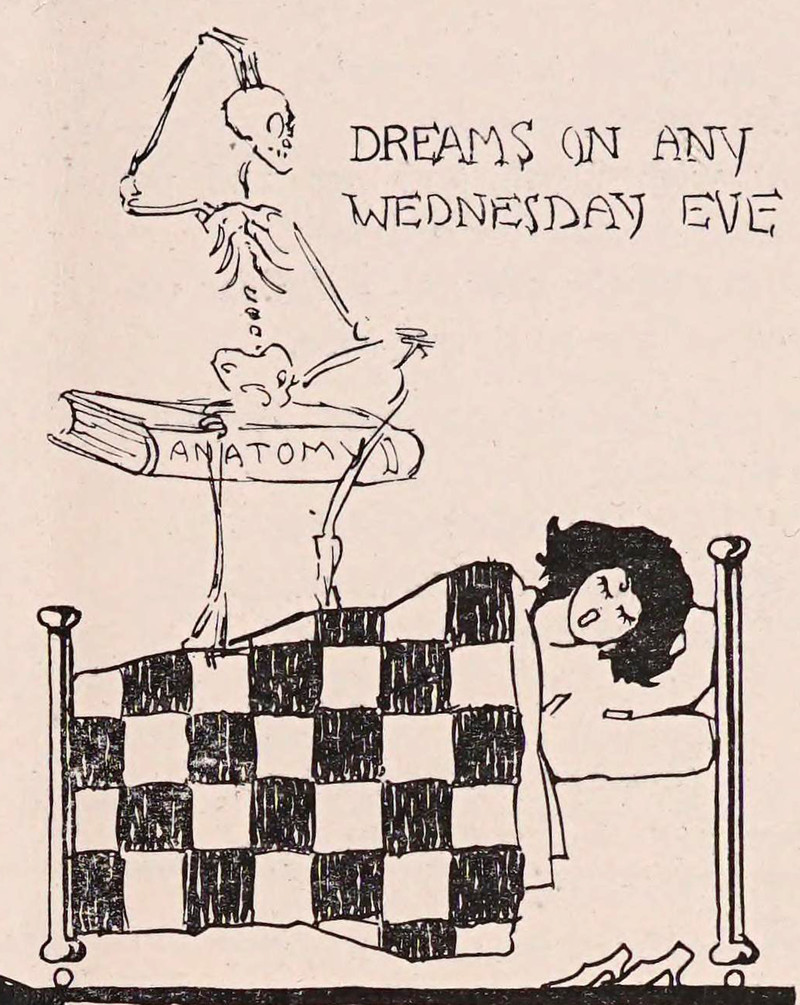 DREAMS ON ANY
WEDNESDAY EVE
ANATOMY